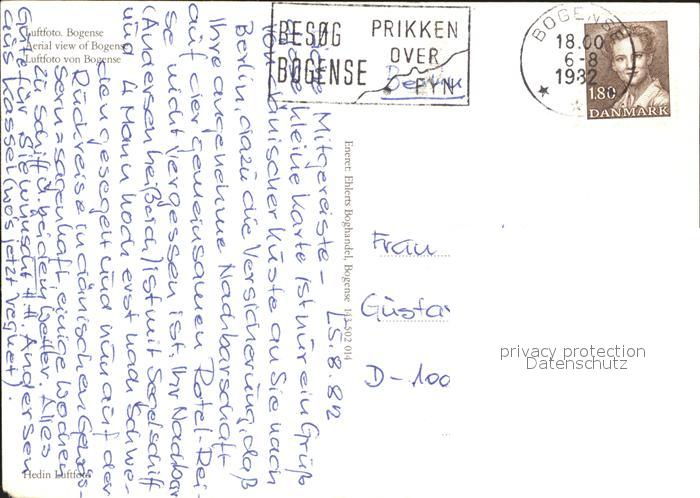 Luftfoto. Bogense
Aerial view of Bogense
Luftfoto von Bogense
BESØG
BOGENSE
PRIKKEN
OVER
FYN
BOGENSE
18.00
6-8
1982
1.80
DANMARK
Mitgereiste –
5.8.82
kleine Karte ist nur ein Gruß
dänischer Küste an Sie nach
Berlin, dazu die Versicherung, daß
Ihre angenehme Nachbarschaft
auf der gemeinsamen Rotel-Rei-
se nicht vergessen ist. Ihr Nachbar
(Andersen heißt ich) ist mit Segelschiff
und 4 Mann hoch erst nach Schwe-
den gesegelt und nun auf der
Rückreise in dänischen Gewäs-
sern – sagenhaft, einige Wochen
zu Schiff u. bei dem Wetter. Alles
Gute für Sie wünscht H. Andersen
aus Kassel (wo's jetzt regnet).
Eneret: Ehlerts Boghandel, Bogense 142-502 014
Frau
Gustav
D-100
privacy protection
Datenschutz
Hedin Luftfoto